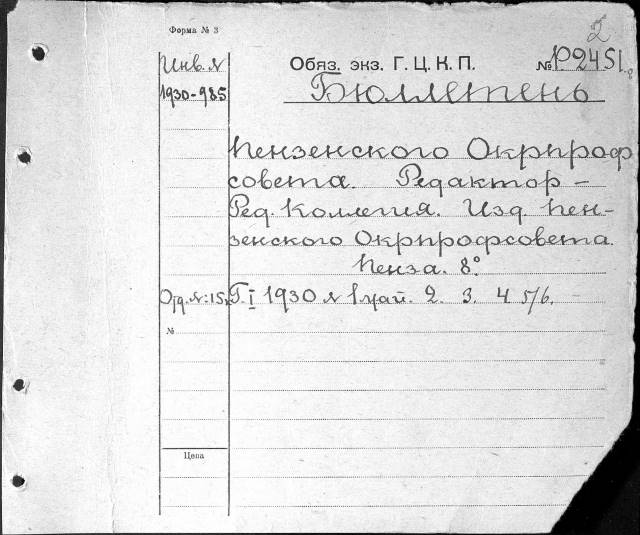 2
Форма № 3
Инв. №
1930-985
Обяз. экз. Г. Ц. К. П. №
Бюллетень
Пензенского Окрпроф
совета. Редактор –
Ред. Коллегия. Изд. Пен-
зенского Окрпрофсовета.
Пенза. 8°.
Г. I 1930 № 1 май. 2. 3. 4. 5/6.
№
Цена